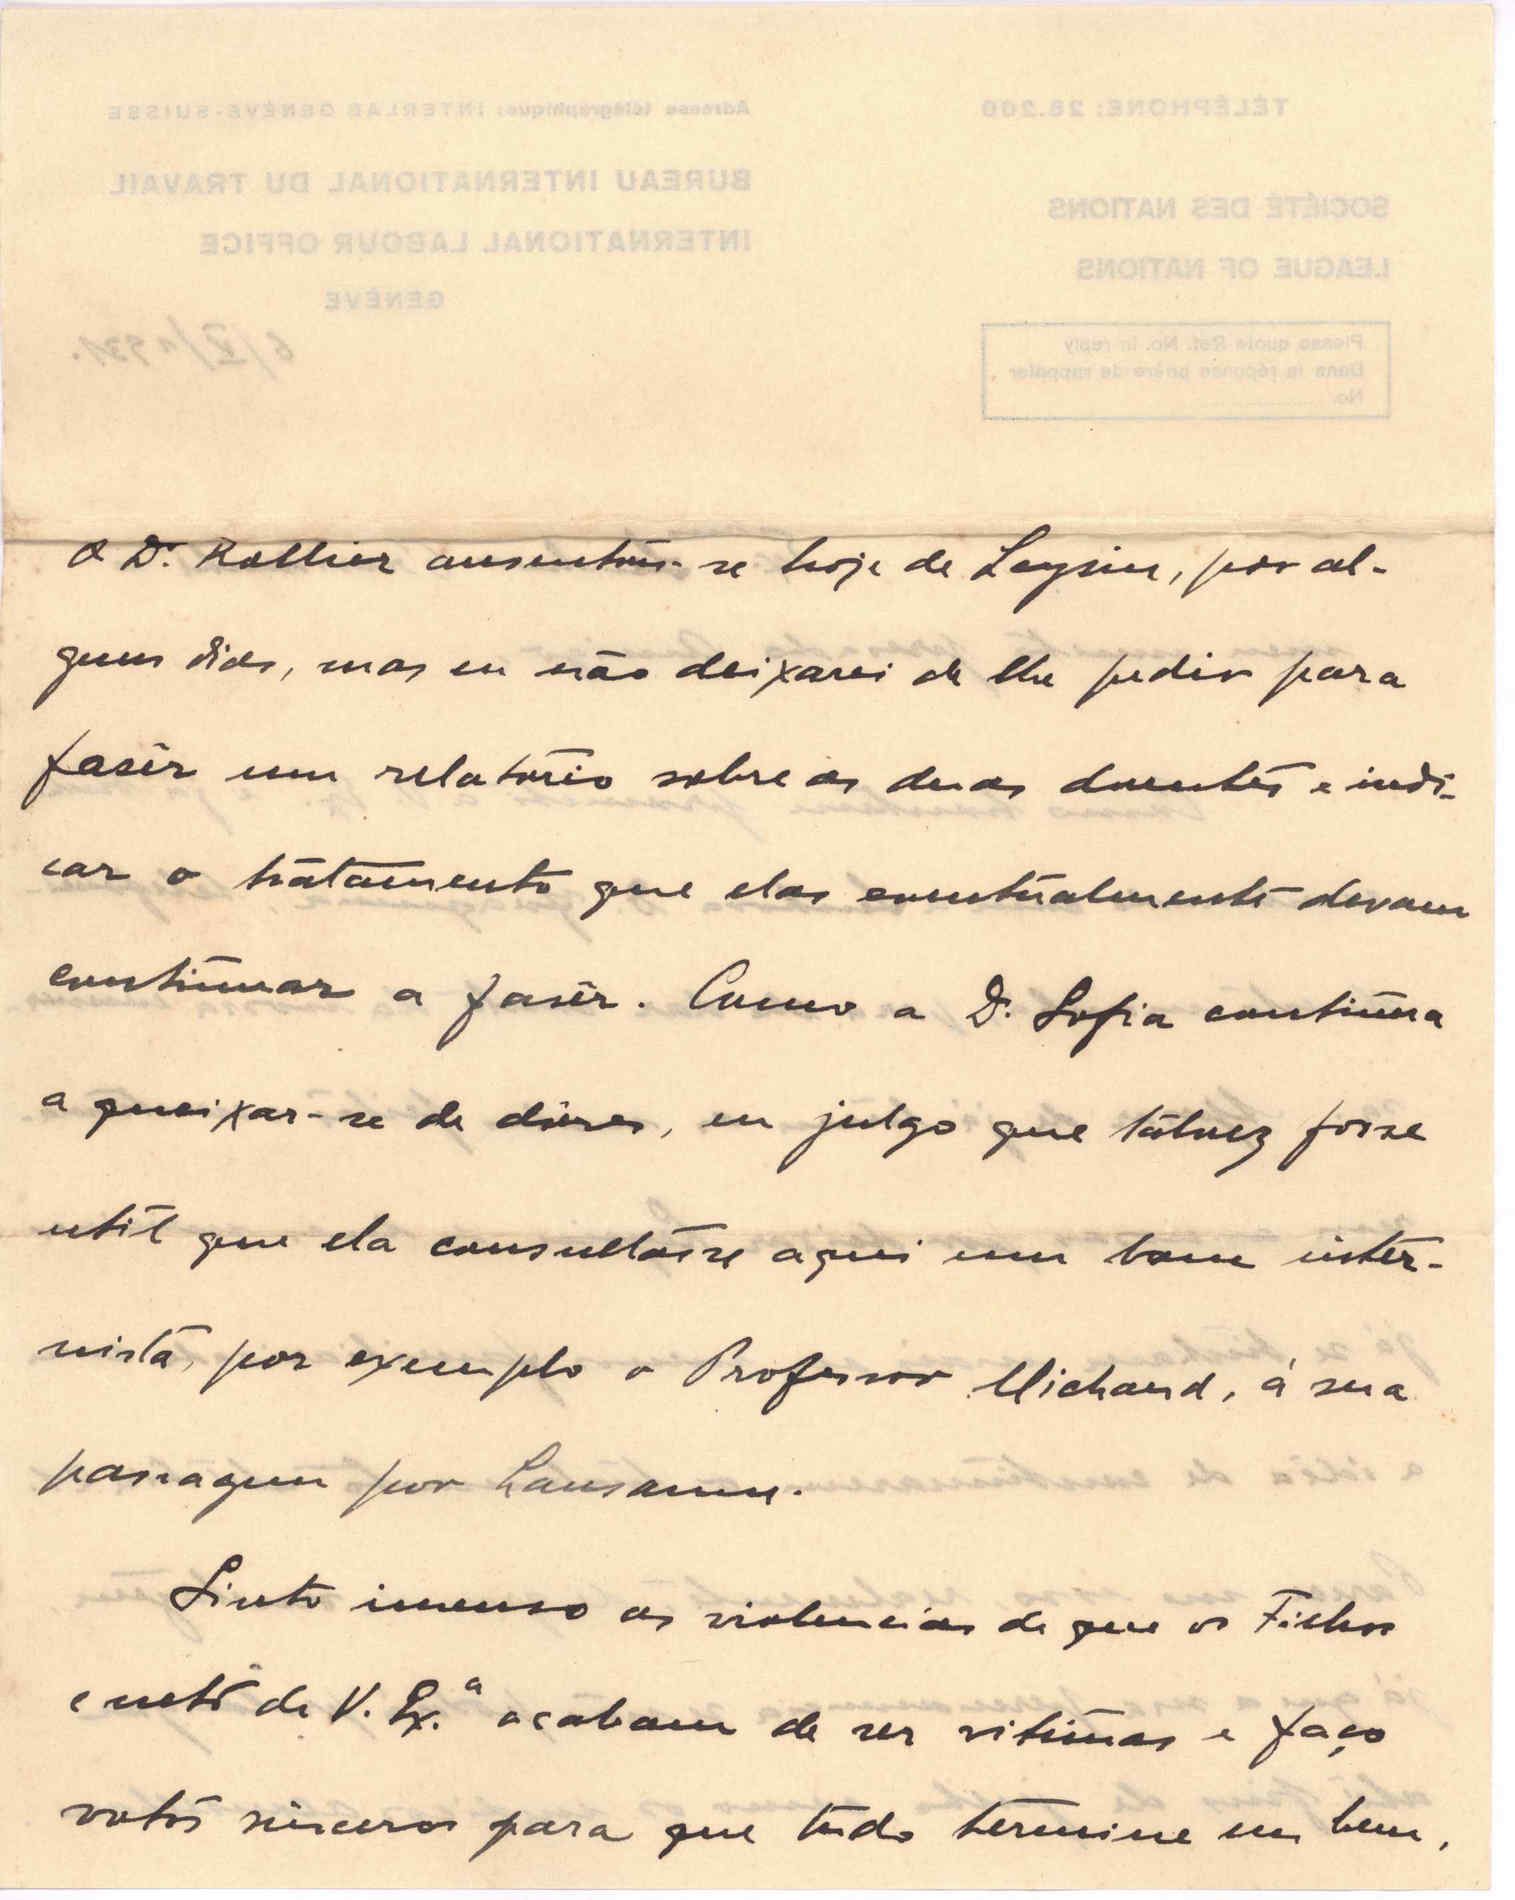 TÉLÉPHONE: 28.200
Adresse télégraphique: INTERLAB GENÈVE-SUISSE
SOCIÉTÉ DES NATIONS
LEAGUE OF NATIONS
BUREAU INTERNATIONAL DU TRAVAIL
INTERNATIONAL LABOUR OFFICE
GENÈVE
6/V/1931.
Please quote Ref. No. in reply
Dans la réponse prière de rappeler
No.
O Dr. Rollier ausentou-se hoje de Leysin, por al-
guns dias, mas eu não deixarei de lhe pedir para
fasêr um relatório sobre as duas doentes e indi-
car o tratamento que elas eventualmente devam
continuar a fasêr. Como a D. Sofia continúa
a queixar-se de dôres, eu julgo que talvez fosse
util que ela consultásse aqui um bom inter-
nista, por exemplo o Professor Michaud, á sua
passagem por Lausanne.
Sinto imenso as violencias de que os Filhos
e neto de V. Ex.ª acabam de ser vitimas e faço
votos sinceros para que tudo termine em bem,